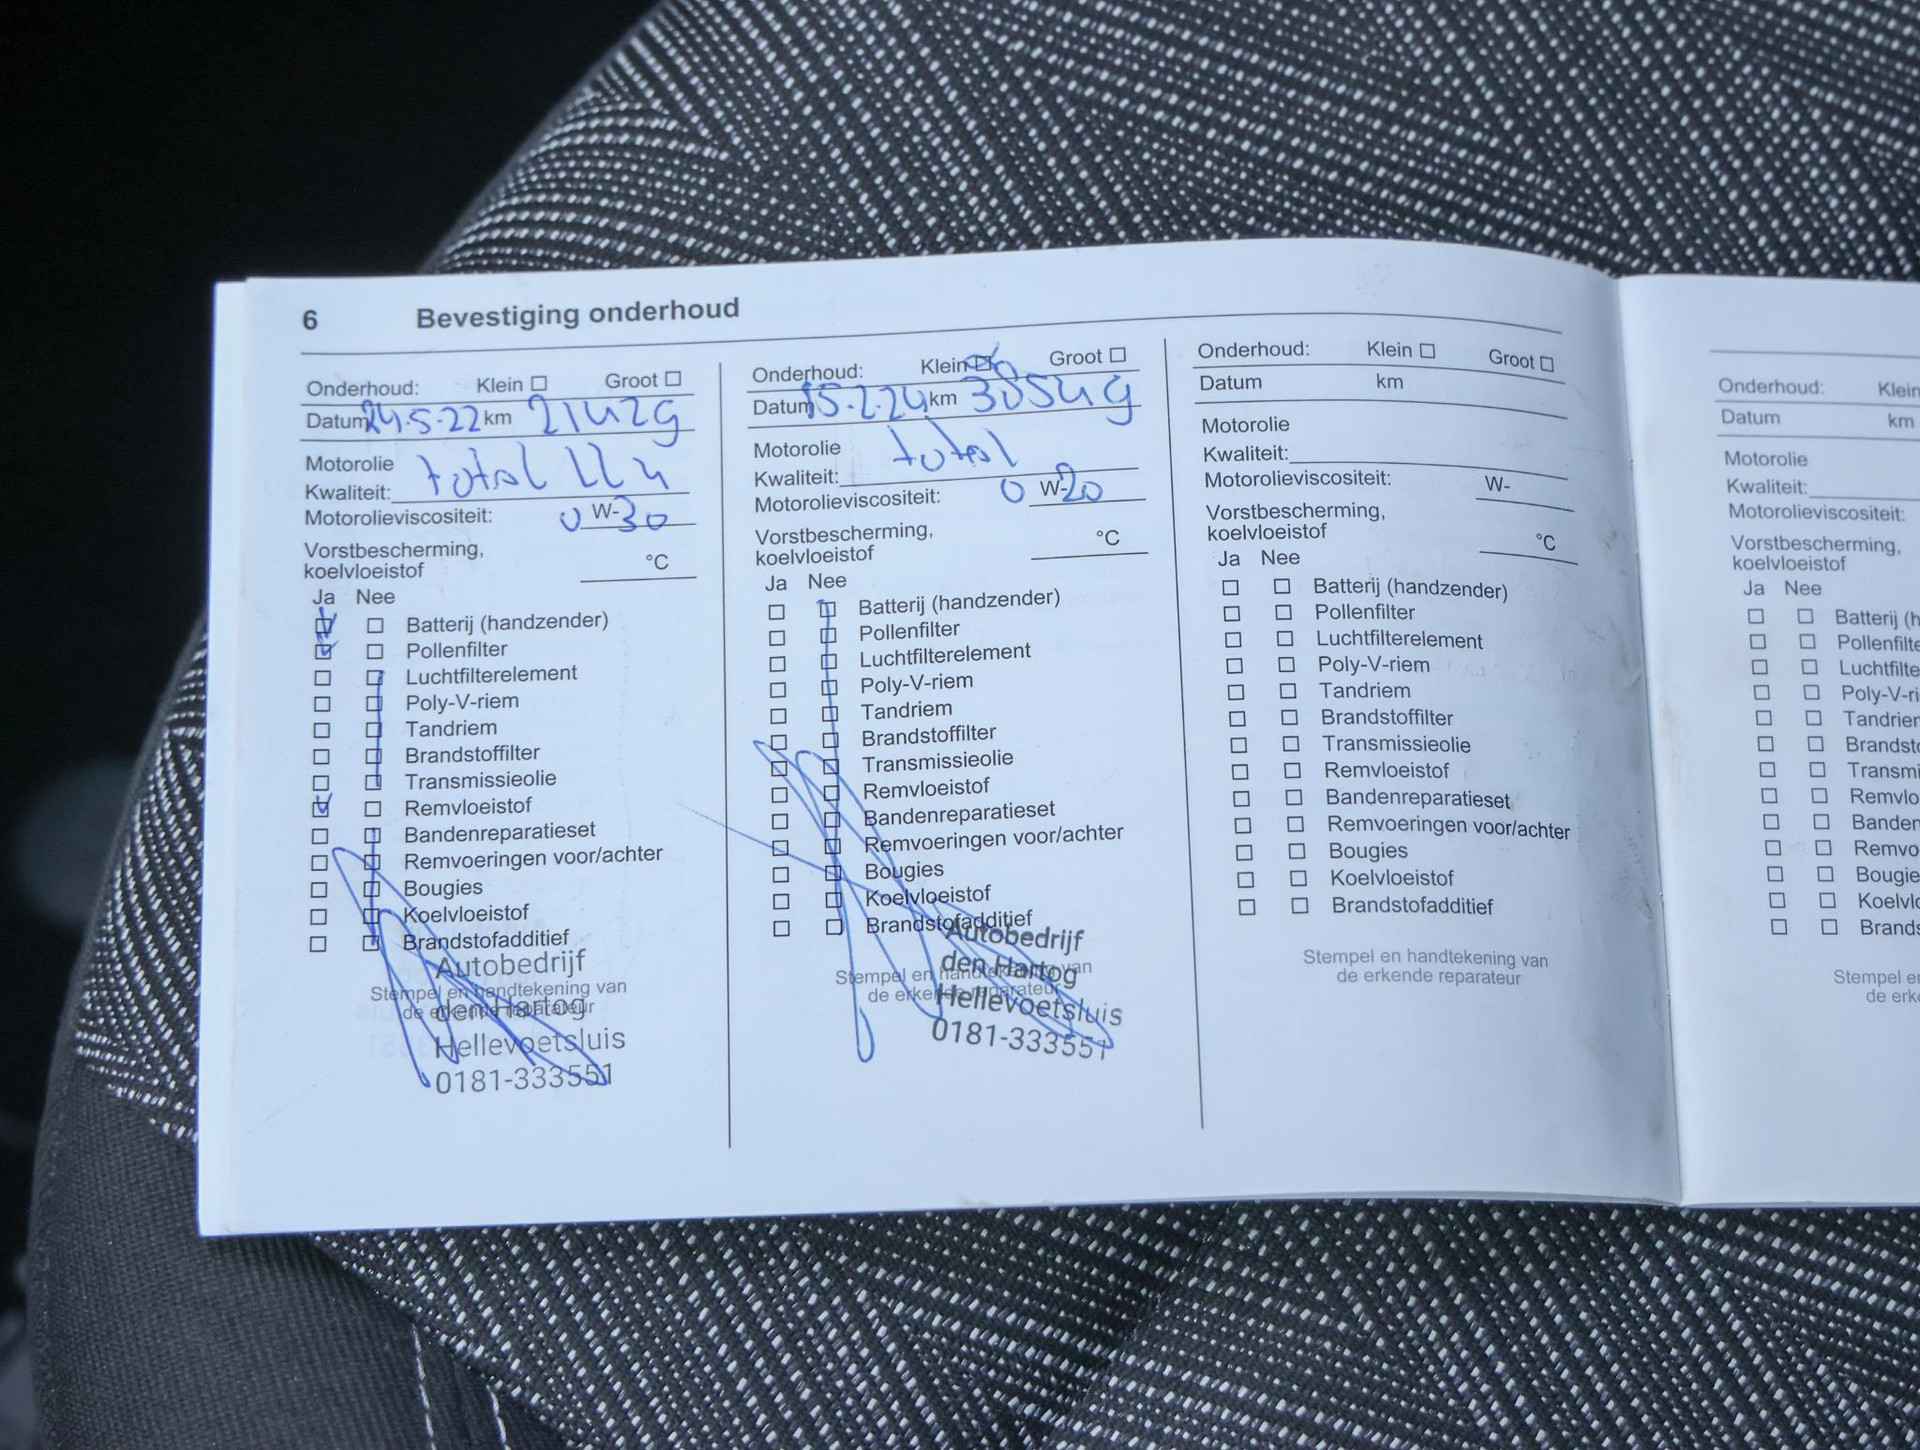 6 Bevestiging onderhoud
Onderhoud: Klein Groot
Datum 24.5.22 km 21429
Motorolie
Kwaliteit: total LL4
Motorolieviscositeit: 0 W-30
Vorstbescherming,
koelvloeistof °C
Ja Nee
Batterij (handzender)
Pollenfilter
Luchtfilterelement
Poly-V-riem
Tandriem
Brandstoffilter
Transmissieolie
Remvloeistof
Bandenreparatieset
Remvoeringen voor/achter
Bougies
Koelvloeistof
Brandstofadditief
Stempel en handtekening van
de erkende reparateur
Autobedrijf
den Hartog
Hellevoetsluis
0181-333551
Onderhoud: Klein Groot
Datum 15.2.24 km 38549
Motorolie
Kwaliteit: total
Motorolieviscositeit: 0 W-20
Vorstbescherming,
koelvloeistof °C
Ja Nee
Batterij (handzender)
Pollenfilter
Luchtfilterelement
Poly-V-riem
Tandriem
Brandstoffilter
Transmissieolie
Remvloeistof
Bandenreparatieset
Remvoeringen voor/achter
Bougies
Koelvloeistof
Brandstofadditief
Stempel en handtekening van
de erkende reparateur
Autobedrijf
den Hartog
Hellevoetsluis
0181-333551
Onderhoud: Klein Groot
Datum km
Motorolie
Kwaliteit:
Motorolieviscositeit: W-
Vorstbescherming,
koelvloeistof °C
Ja Nee
Batterij (handzender)
Pollenfilter
Luchtfilterelement
Poly-V-riem
Tandriem
Brandstoffilter
Transmissieolie
Remvloeistof
Bandenreparatieset
Remvoeringen voor/achter
Bougies
Koelvloeistof
Brandstofadditief
Stempel en handtekening van
de erkende reparateur
Onderhoud: Klein
Datum km
Motorolie
Kwaliteit:
Motorolieviscositeit:
Vorstbescherming,
koelvloeistof
Ja Nee
Batterij (h
Pollenfilte
Luchtfilte
Poly-V-ri
Tandrie
Brandsto
Transmi
Remvlo
Banden
Remvo
Bougie
Koelvlo
Brands
Stempel e
de erk